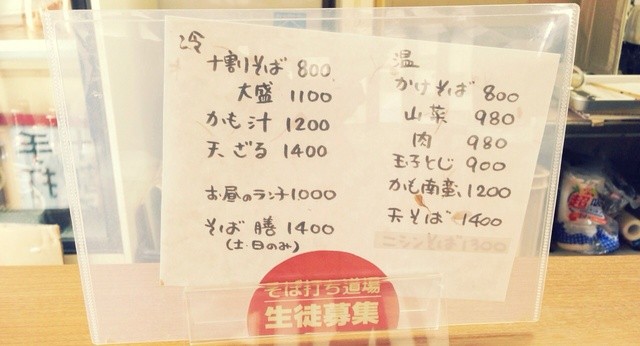 冷
十割そば 800
大盛 1100
かも汁 1200
天ざる 1400
お昼のランチ 1,000
そば膳 1400
(土・日のみ)
温
かけそば 800
山菜 980
肉 980
玉子とじ 900
かも南蛮 1200
天そば 1400
ニシンそば 1300
そば打ち道場
生徒募集